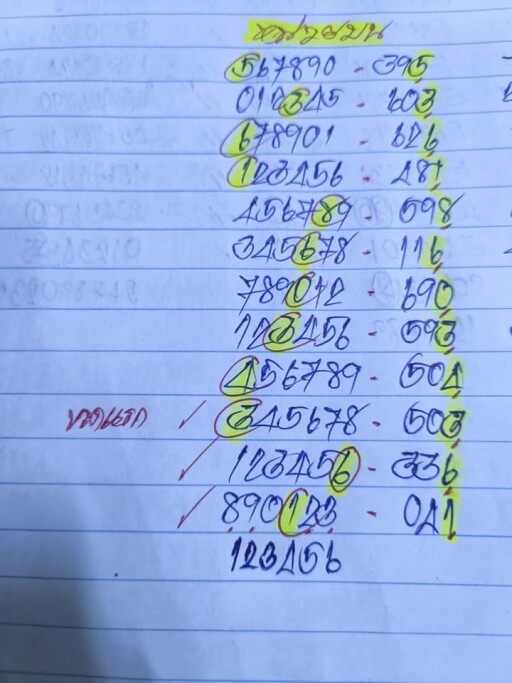 หน่วยบน
567890 - 395
012345 - 603
678901 - 626
123456 - 481
456789 - 598
345678 - 116
789012 - 690
123456 - 593
456789 - 504
345678 - 503
123456 - 336
890123 - 041
123456